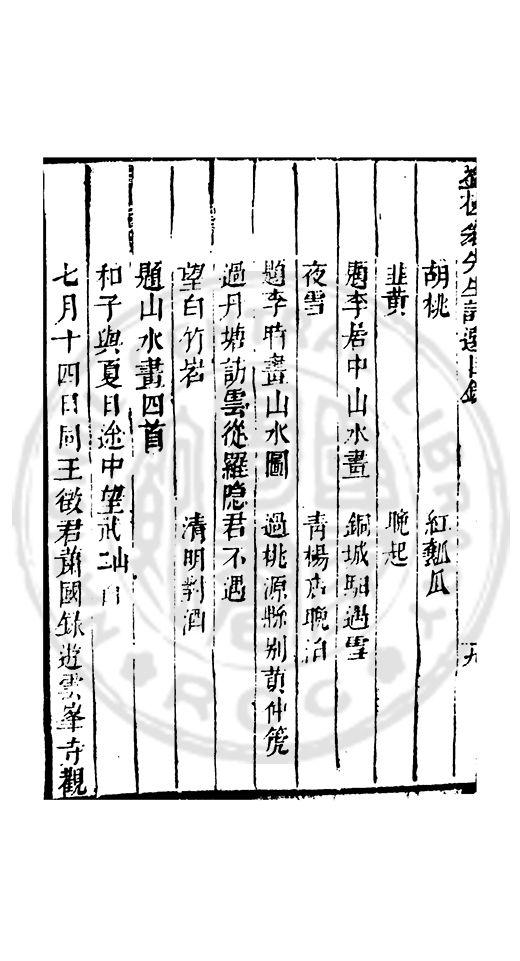 先生詩選目錄
胡桃 紅瓤瓜
韭黄 晚起
題李居中山水畫 銅城馹遇雪
夜雪 青楊店晚泊
題李時畫山水圖 過桃源縣别黄仲箎
過丹塘訪雲從羅隐君不遇
望白竹岩 清明對酒
題山水畫四首
和子與夏日途中望武
七月十四日同王徵君蕭國錄遊雲峯寺觀